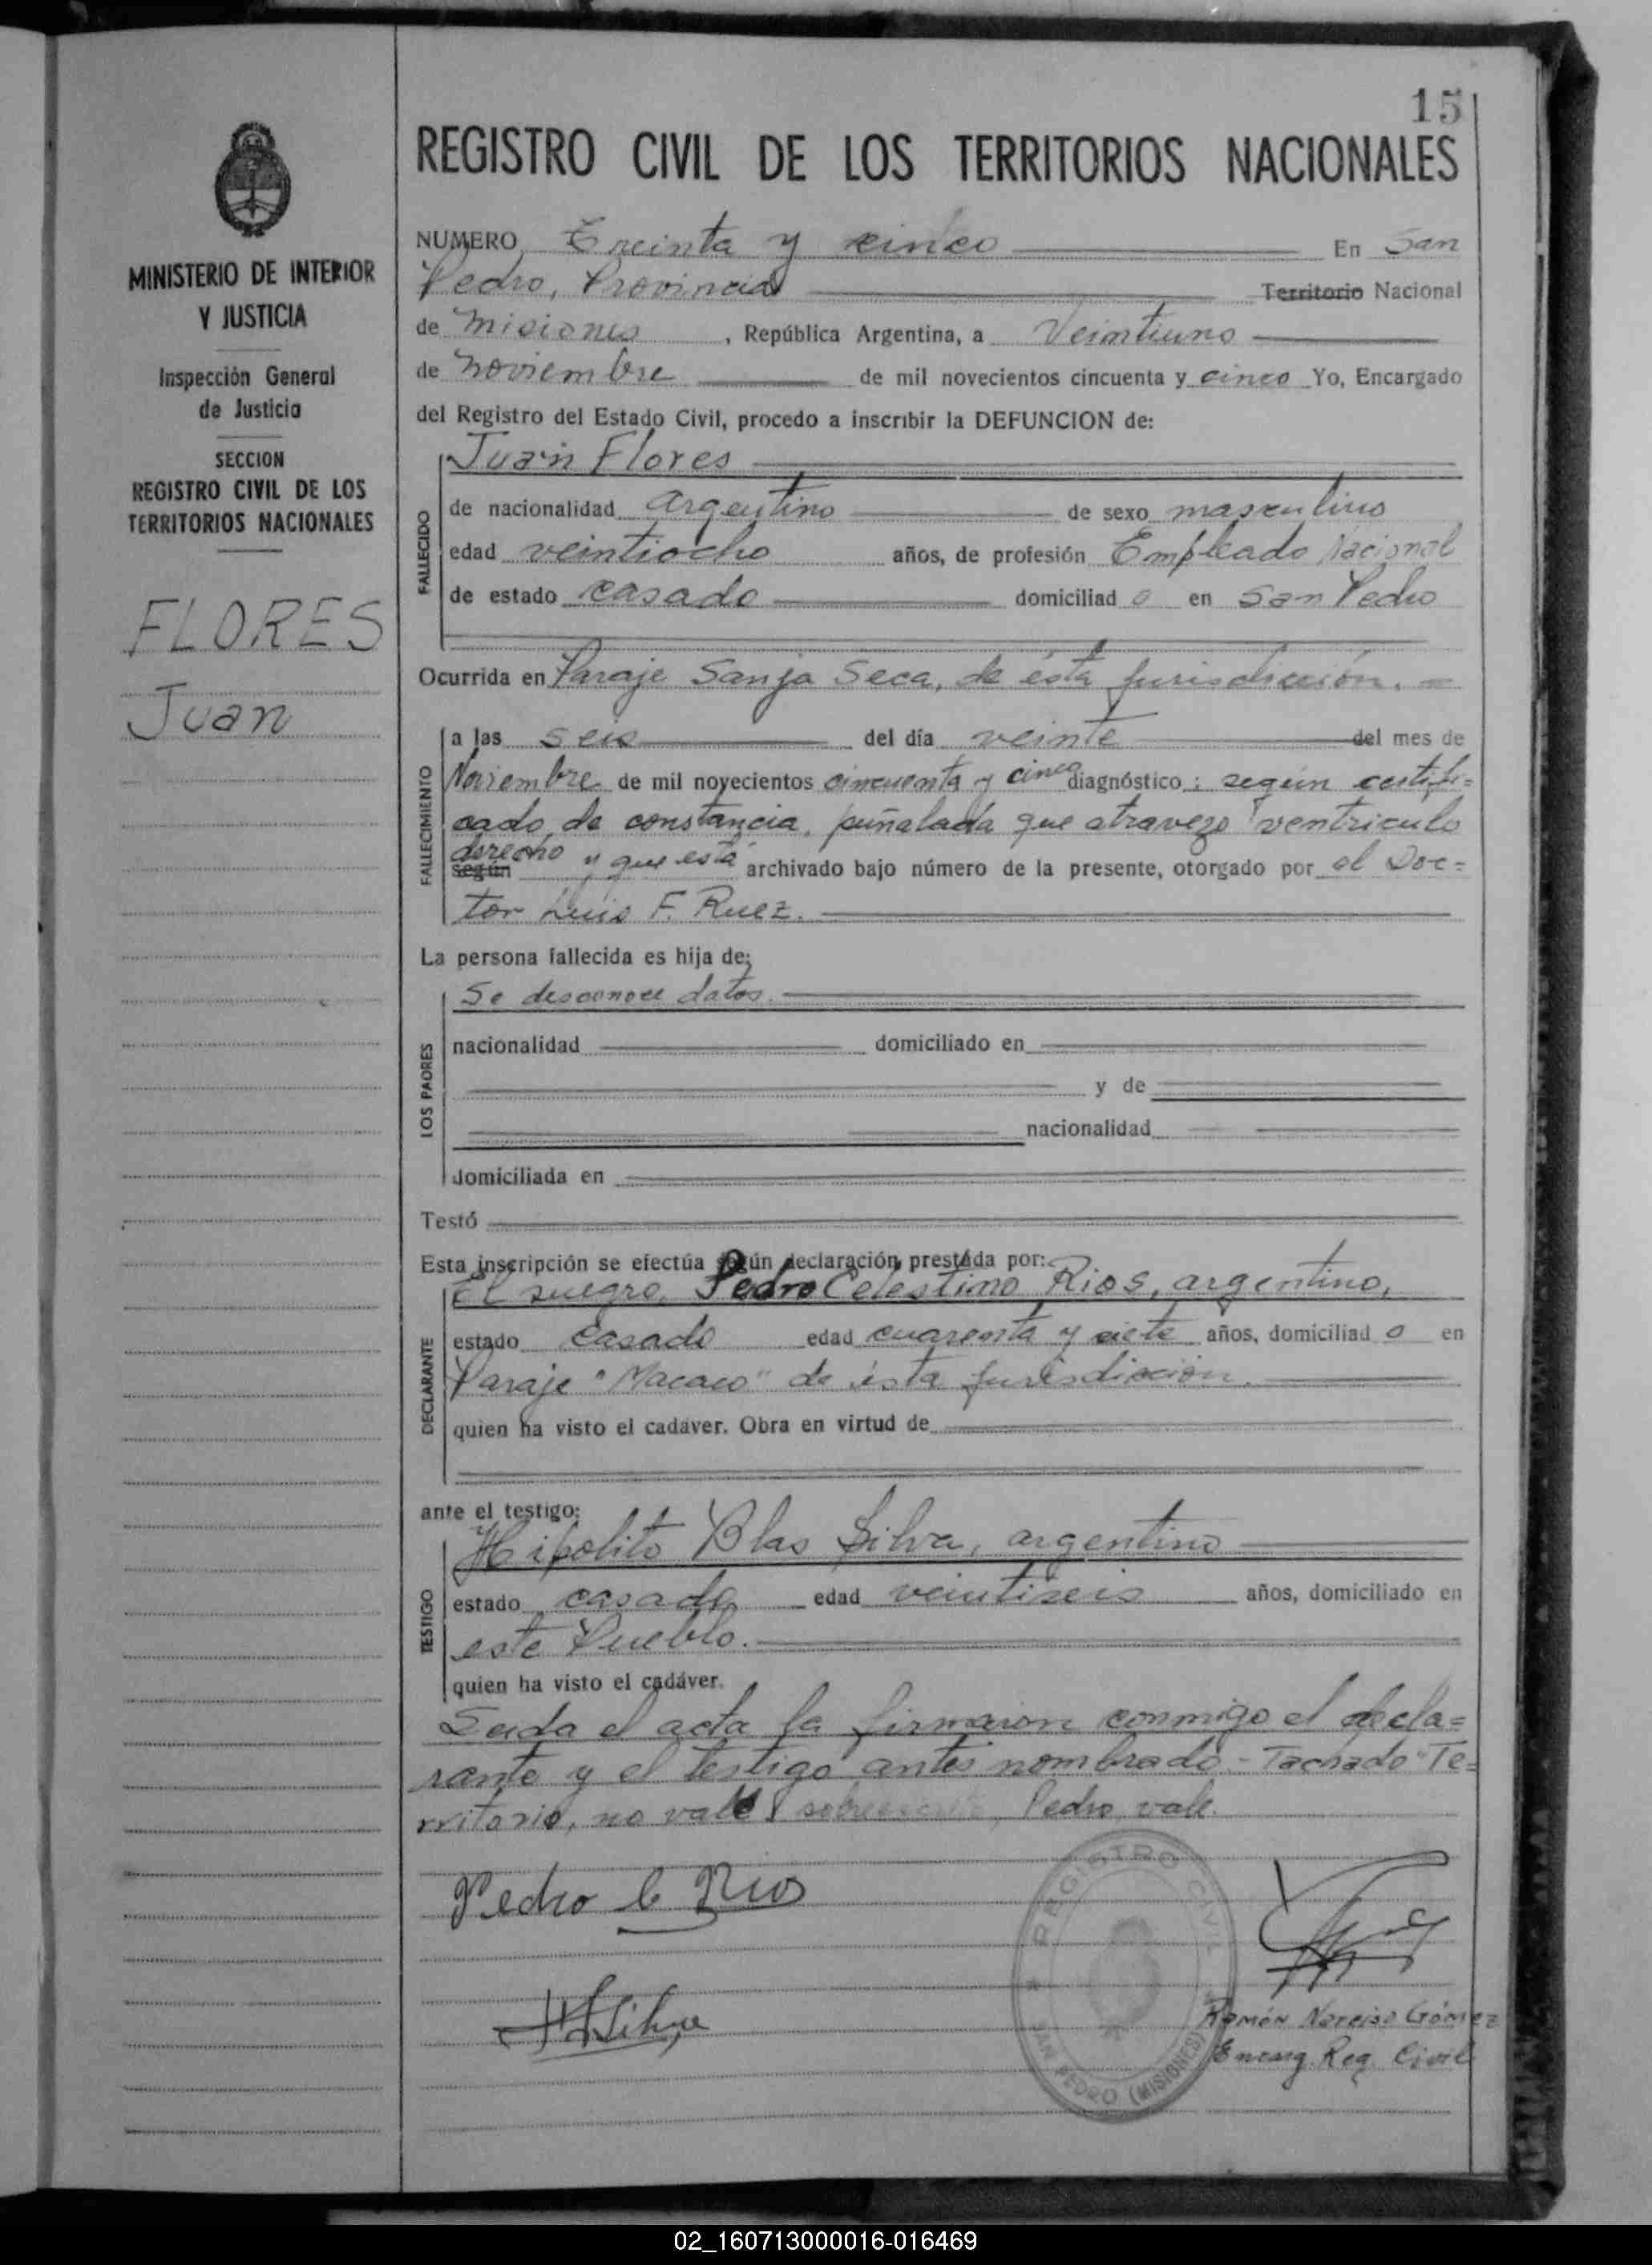 15
REGISTRO CIVIL DE LOS TERRITORIOS NACIONALES
MINISTERIO DE INTERIOR
Y JUSTICIA
Inspección General
de Justicia
SECCION
REGISTRO CIVIL DE LOS
TERRITORIOS NACIONALES
FLORES
Juan
NUMERO Treinta y cinco En San
Pedro, Provincia Territorio Nacional
de Misiones, República Argentina, a Veintiuno
de noviembre de mil novecientos cincuenta y cinco Yo, Encargado
del Registro del Estado Civil, procedo a inscribir la DEFUNCION de:
Juan Flores
FALLECIDO
de nacionalidad argentino de sexo masculino
edad veintiocho años, de profesión Empleado Nacional
de estado casado domiciliad o en San Pedro
Ocurrida en Paraje Sanja Seca, de ésta jurisdicción.
FALLECIMIENTO
a las seis del día veinte del mes de
Noviembre de mil novecientos cincuenta y cinco diagnóstico: según certifi=
cado de constancia, puñalada que atravezo ventriculo
derecho y que está
según archivado bajo número de la presente, otorgado por el Doc=
tor Luis F. Ruez.
La persona fallecida es hija de:
Se desconoce datos.
LOS PADRES
nacionalidad domiciliado en
y de
nacionalidad
domiciliada en
Testó
Esta inscripción se efectúa según declaración prestada por:
El suegro, Pedro Celestino Rios, argentino,
DECLARANTE
estado casado edad cuarenta y siete años, domiciliad o en
Paraje "Macaco" de ésta jurisdicción.
quien ha visto el cadáver. Obra en virtud de
ante el testigo:
Hipolito Blas Silva, argentino
TESTIGO
estado casado edad veintiseis años, domiciliado en
este Pueblo.
quien ha visto el cadáver.
Leida el acta la firmaron conmigo el decla=
rante y el testigo antes nombrado.- Tachado "Te=
rritorio, no vale sobreescrito Pedro vale.
Pedro C Rios
H B Silva
REGISTRO CIVIL
SAN PEDRO (MISIONES)
Ramón Narciso Gómez
Encarg. Reg. Civil
02_160713000016-016469